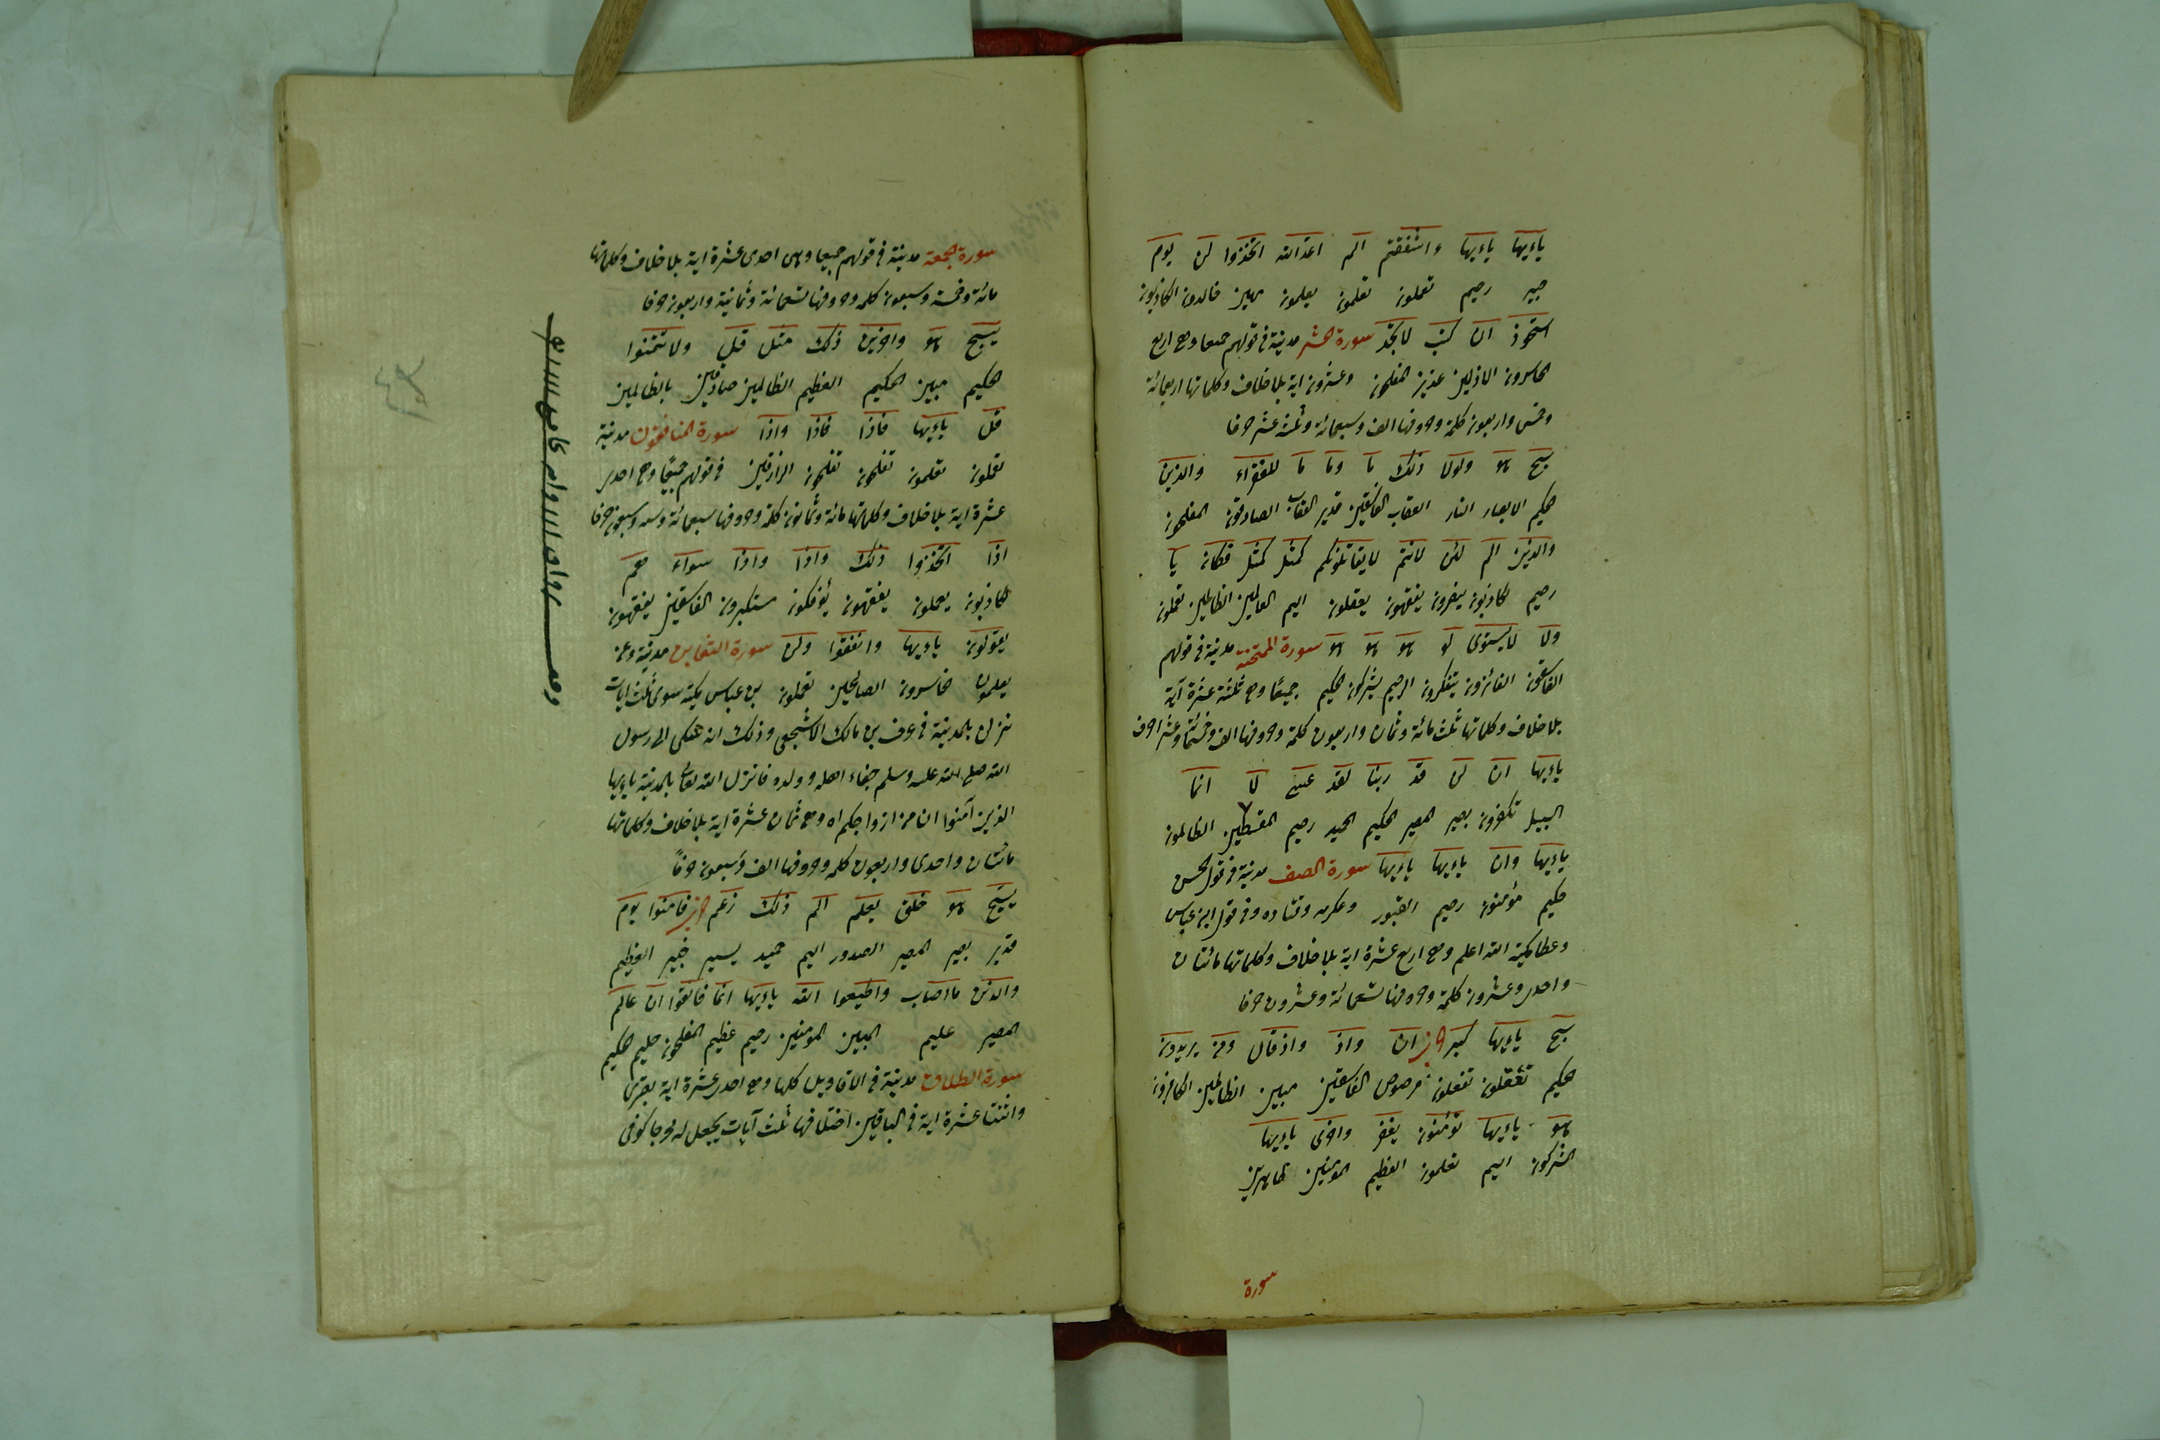 ياءيها ياءيها ءاشفقتم الم اعدالله اتخذوا لن يوم
خبير رحيم تعملون تعلمون يعلمون مهين خالدون الكاذبون
استحوذ ان كتب لاتجد سورة الحشر مدنية فى قولهم جميعا وهى اربع
الخاسرون الاذلين عزيز المفلحون وعشرون اية بلاخلاف وكلماتها اربعمائة
وخمس واربعون كلمة وحروفها الف وسبعمائة وثلثة عشر حرفا
سبح هو ولولا ذلك ما وما ما للفقراء والذين
حكيم الابصار النار العقاب الفاسقين قدير العقاب الصادقون المفلحون
والذين الم لئن لانتم لايقاتلونكم كمثل كمثل فكان يا
رحيم لكاذبون ينصرون يفقهون يعقلون اليم العالمين الظالمين تعملون
ولا لايستوى لو هو هو هو سورة الممتحنة مدنية فى قولهم
الفاسقون الفائزون يتفكرون الرحيم يشركون حكيم جميعًا وهى ثلثة عشرة آية
بلاخلاف وكلماتها ثلث مائة وثمان واربعون كلمة وحروفها الف وخمسمائة وعشر احرف
ياءيها ان لن قد ربنا لقد عسى لا انما
السبيل تكفرون بصير المصير الحكيم الحميد رحيم المقسطين الظالمون
ياءيها وان ياءيها ياءيها سورة الصف مدنية فى قول الحسن
حكيم مؤمنون رحيم القبور وعكرمه وقتاده وفى قول ابن عباس
وعطا مكية الله اعلم وهى اربع عشرة اية بلاخلاف وكلماتها مائتان
واحدى وعشرون كلمة وحروفها تسعمائة وعشرون حرفا
سبح ياءيها كبر ان واذ واذقال ومن يريدون
حكيم تفعلون تفعلون مرصوص الفاسقين مبين الظالمين الكافرون
هو ياءيها تؤمنون يغفر واخرى ياءيها
المشركون اليم تعلمون العظيم المؤمنين ظاهرين
سورة
سورة الجمعة مدنية فى قولهم جميعا وهى احدى عشرة اية بلاخلاف وكلماتها
مائة وخمسة وسبعون كلمه وحروفها تسعمائة وثمانية واربعون حرفا
يسبح هو واخرين ذلك مثل قل ولايتمنوا
حكيم مبين الحكيم العظيم الظالمين صادقين بالظالمين
قل ياءيها فاذا فاذا واذا سورة المنافقون مدنية
تعملون تعلمون تفلحون تفلحون الرازقين فى قولهم جميعًا وهى احدى
عشرة اية بلاخلاف وكلماتها مائة وثمانون كلمة وحروفها سبعمائة وستة وسبعون حرفا
اذا اتخذوا ذلك واذا واذا سواء هم
لكاذبون يعملون يفقهون يؤفكون مستكبرون الفاسقين يفقهون
يقولون ياءيها وانفقوا ولن سورة التغابن مدنية وعن
يعلمون خاسرون الصالحين تعملون بن عباس مكية سوى ثلث ايات
نزلن بالمدنية فى عوف بن مالك الاشجعى وذلك انه شكى الى رسول
الله صلى الله عليه وسلم جفاء اهله وولده فانزل الله تعالى بالمدنية ياءيها
الذين آمنوا ان من ازواجكم اه وهى ثمان عشرة اية بلاخلاف وكلماتها
مائتان واحدى واربعون كلمه وحروفها الف وسبعون حرفاً
يسبح هو خلق يعلم الم ذلك زعم فامنوا يوم
قدير بصير المصير الصدور اليم حميد يسير خبير العظيم
والذين مااصاب واطيعوا الله ياءيها انما فاتقوا ان عالم
المصير عليم المبين المؤمنين رحيم عظيم المفلحون حليم حكيم
سورة الطلاق مدنية فى الاقاويل كلها وهى احدى عشرة اية بصرى
واثنتا عشرة اية فى الباقين اختلافها ثلث آيات يجعل له مخرجا كوفى